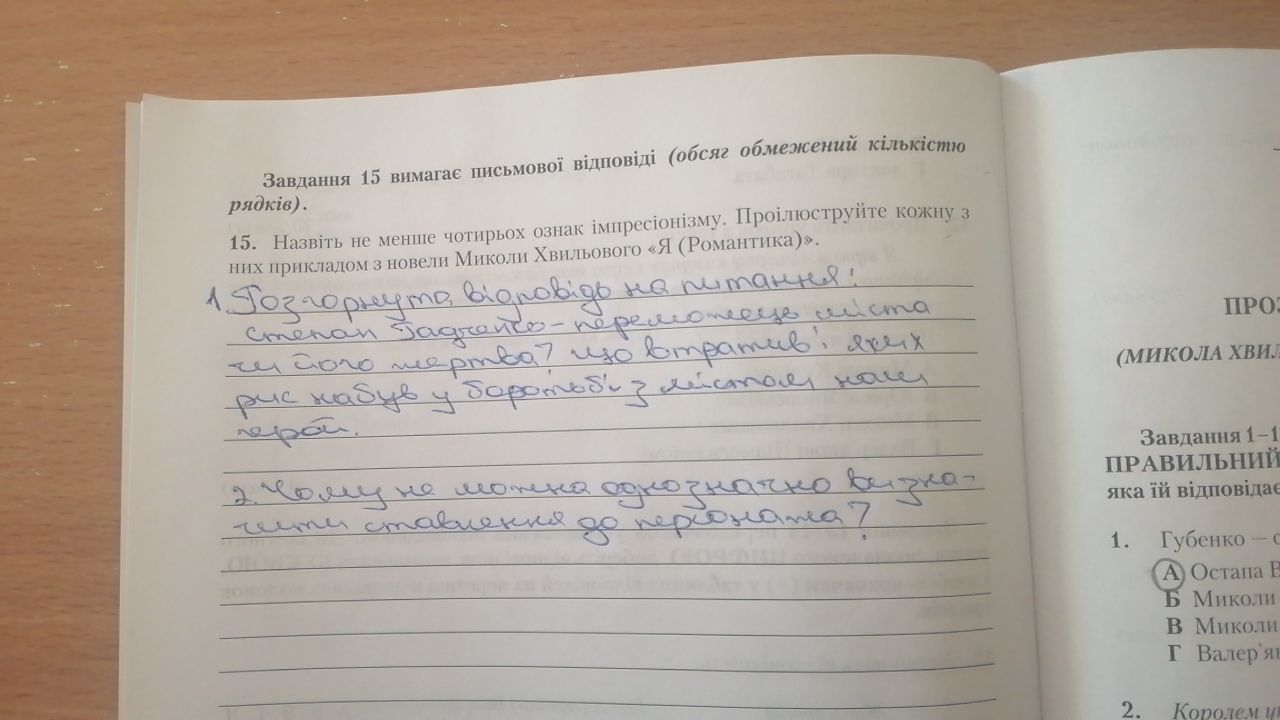 Завдання 15 вимагає письмової відповіді (обсяг обмежений кількістю
рядків).
15. Назвіть не менше чотирьох ознак імпресіонізму. Проілюструйте кожну з
них прикладом з новели Миколи Хвильового «Я (Романтика)».
1. Розгорнута відповідь на питання:
Степан Радченко - переможець міста
чи його жертва? Що втратив і яких
рис набув у боротьбі з містом наш
герой.
2. Чому не можна однозначно визна-
чити ставлення до персонажа?
ПРОЗ
(МИКОЛА ХВИЛ
Завдання 1–1
ПРАВИЛЬНИЙ
яка їй відповідає
1. Губенко — с
А Остапа В
Б Миколи
В Миколи
Г Валер'ян
2. Королем у